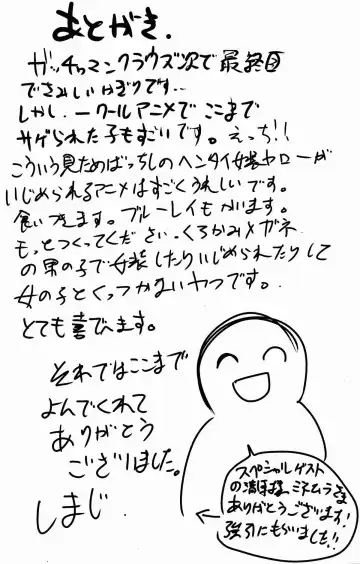 あとがき.
ガッチャマンクラウズ次で最終回
でさみしいかぎりです..
しかし、一クールアニメでここまで
サゲられた子もすごいです。えっち!!
こういう見ためばっちしのヘンタイ女装ヤローが
いじめられるアニメはすごくうれしいです。
食いつきます。ブルーレイもかいます。
もっとつくってください。くろかみメガネ
の男の子で女装したりいじめられたりして
女の子とくっつかないヤツです。
とても喜びます。
それではここまで
よんでくれて
ありがとう
ございました。
しまじ
スペシャルゲスト
の ミネムラさま
ありがとうございます!
強引にもらいました!!